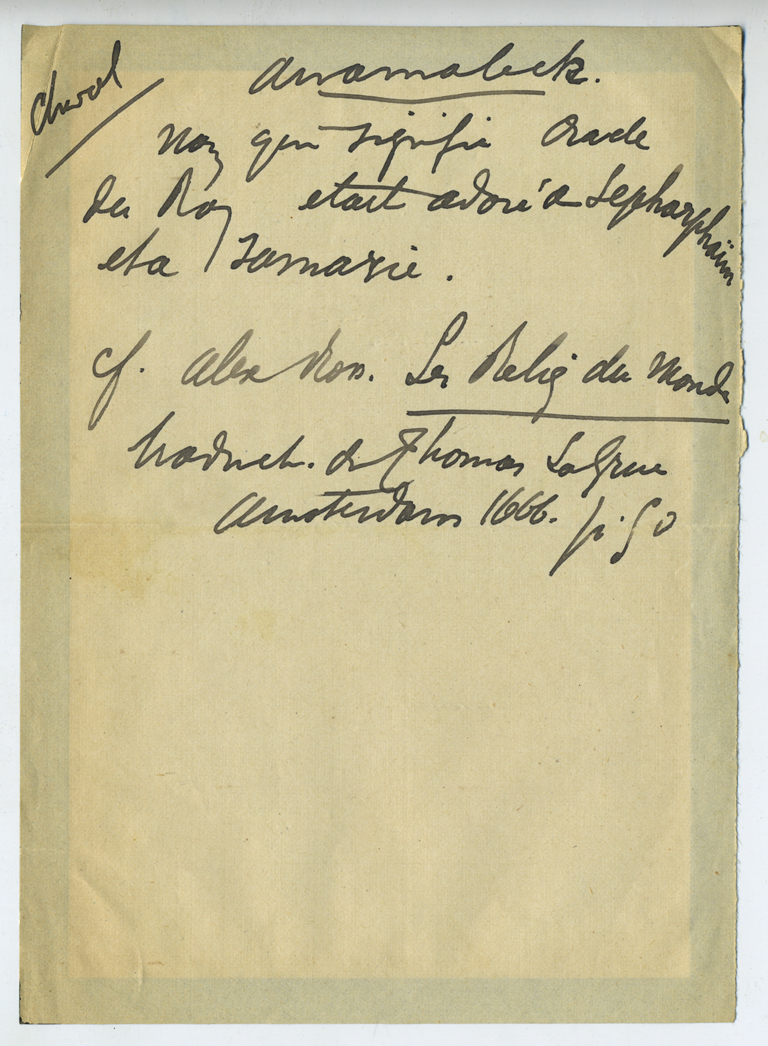 Cheval
Anamaleck.
Nom qui signifie Oracle
du Roy etait adoré a Sepharphaïm
et a Samarie.
cf. Alex Ross. Les Relig du Monde
traduct. de Thomas La Grue
Amsterdam 1666. p. 50